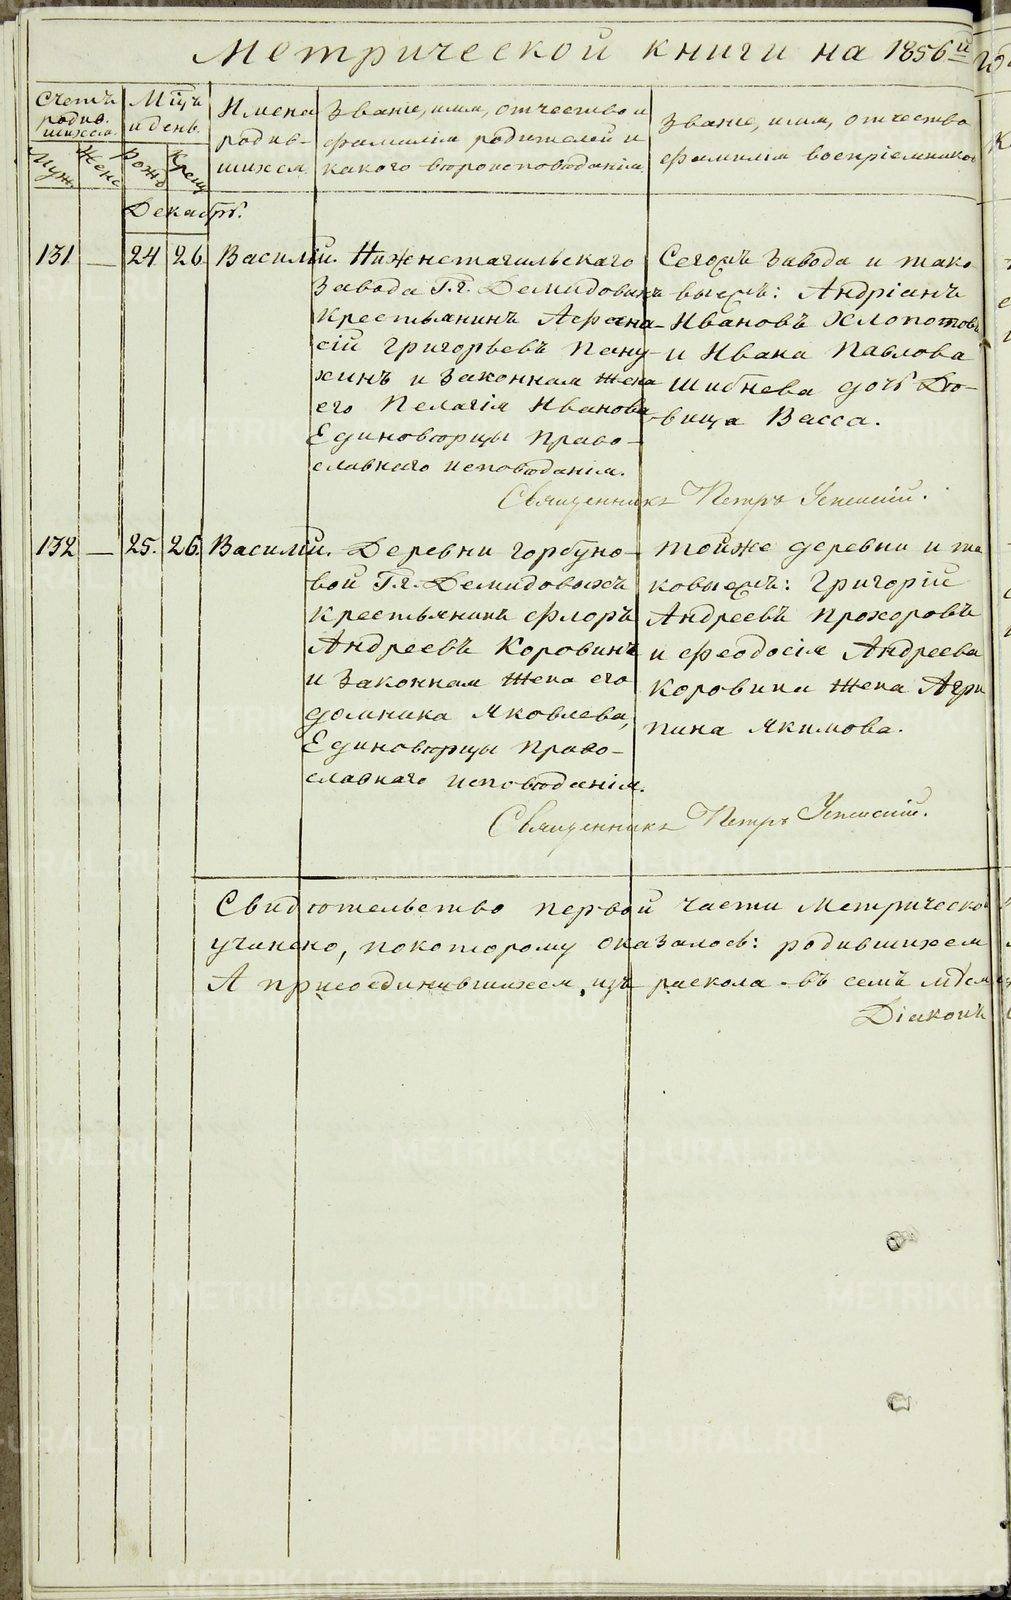 Метрической книги на 1856й
Счетъ родив- шихся.
Муж
Женс
Мцъ и день.
Рожд
Крещ
Имена родив- шихся
Званіе, имя, отчество и фамилія родителей и какого вѣроисповѣданія
Званіе, имя, отчество фамилія воспріемников
Декабрь.
131 — 24 26 Василій.
Нижнетагильскаго
завода Гг. Демидовыхъ
крестьянинъ Афана-
сій Григорьевъ Пану-
хинъ и законная жена
его Пелагія Иванова
Единовѣрцы Право-
славнаго исповѣданія.
Сегожъ завода и тако-
выхжъ: Андріанъ
Ивановъ Хлопотовъ
и Ивана Павлова
Шибнева дочь Дѣ-
вица Васса.
Священникъ Петръ Успенскій.
132 — 25. 26. Василій.
Деревни Горбуно-
вой Гг. Демидовыхъ
крестьянинъ Флоръ
Андреевъ Коровинъ
и законная жена его
Домника Яковлева,
Единовѣрцы Право-
славнаго исповѣданія.
Тойже деревни и та
ковыхжъ: Григорій
Андреевъ Прохоровъ
и Феодосія Андреева
Коровина жена Агри
пина Якимова.
Священникъ Петръ Успенскій.
Свидѣтельство первой части Метрическо
учинено, покоторому оказалось: родившихся
А присоединившихся изъ раскола въ семъ мѣся
Діаконъ
METRIKI.GASO-URAL.RU